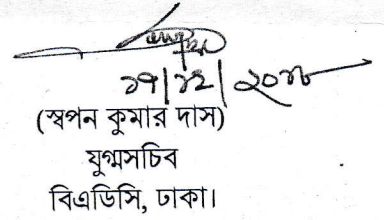 ১৭/১২/২০১৮
(স্বপন কুমার দাস)
যুগ্মসচিব
বিএডিসি, ঢাকা।